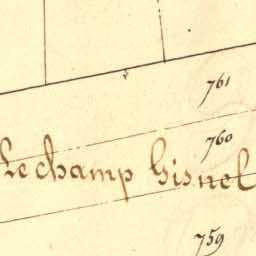 761
760
Le champ Gisnel
759